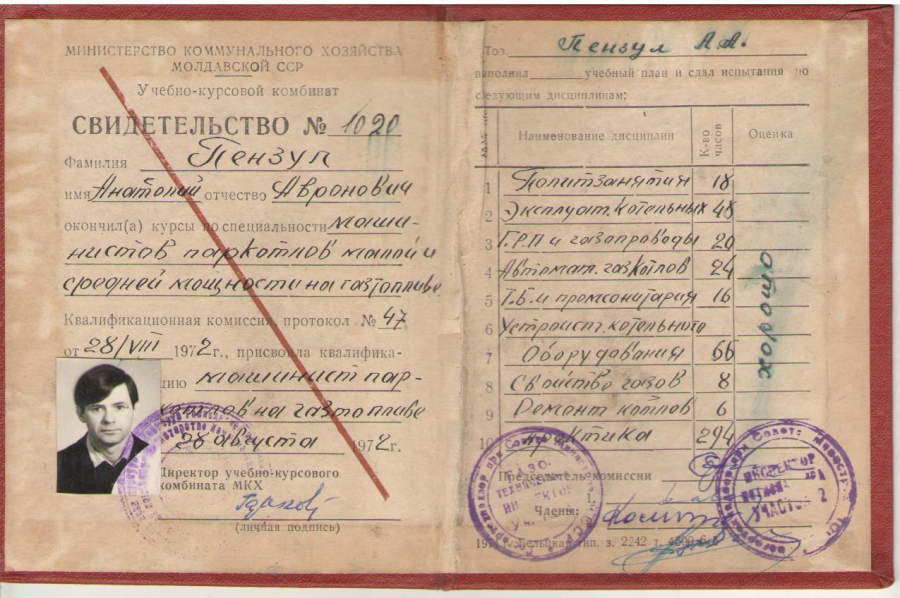 МИНИСТЕРСТВО КОММУНАЛЬНОГО ХОЗЯЙСТВА
МОЛДАВСКОЙ ССР
Учебно-курсовой комбинат
СВИДЕТЕЛЬСТВО № 1020
Фамилия Пензул
имя Анатолий отчество Авронович
окончил(а) курсы по специальности маши-
нистов паркотлов малой и
средней мощности на газтопливе
Квалификационная комиссия, протокол № 47
от 28/VIII 1972г., присвоила квалифика-
цию машинист пар-
котлов на газтопливе
28 августа 1972г.
Директор учебно-курсового
комбината МКХ
(личная подпись)
Тов. Пензул А.А.
выполнил учебный план и сдал испытания по
следующим дисциплинам:
Наименование дисциплин К-во часов Оценка
1 Политзанятия 18
2 Эксплуат. котельных 48
3 Г.Р.П и газопроводы 20
4 Автомат. газкотлов 24
5 Т.Б. и промсанитария 16
6 Устройст. котельного
7 Оборудования 66
8 Свойство газов 8
9 Ремонт котлов 6
10 практика 294
хорошо
Председатель комиссии
Члены:
Бельцкая тип. з. 2242 т.
ИНСПЕКТОР
УЧАСТОК 2